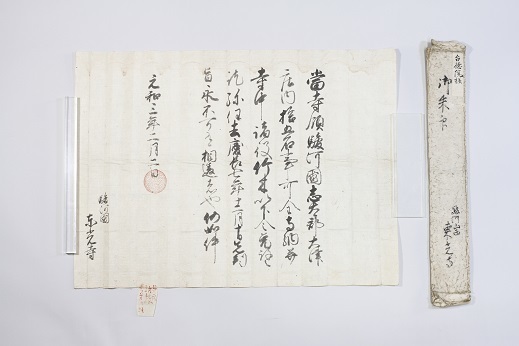 當寺領駿河國志太郡大津
庄内拾五石事可全寺納并
寺中諸役竹木以下令免許
訖弥任去慶長七年十二月十日先判
旨永不可有相違者也仍如件
元和三年二月二日
駿河國
東光寺
台徳院様
御朱印
駿河國
東光寺